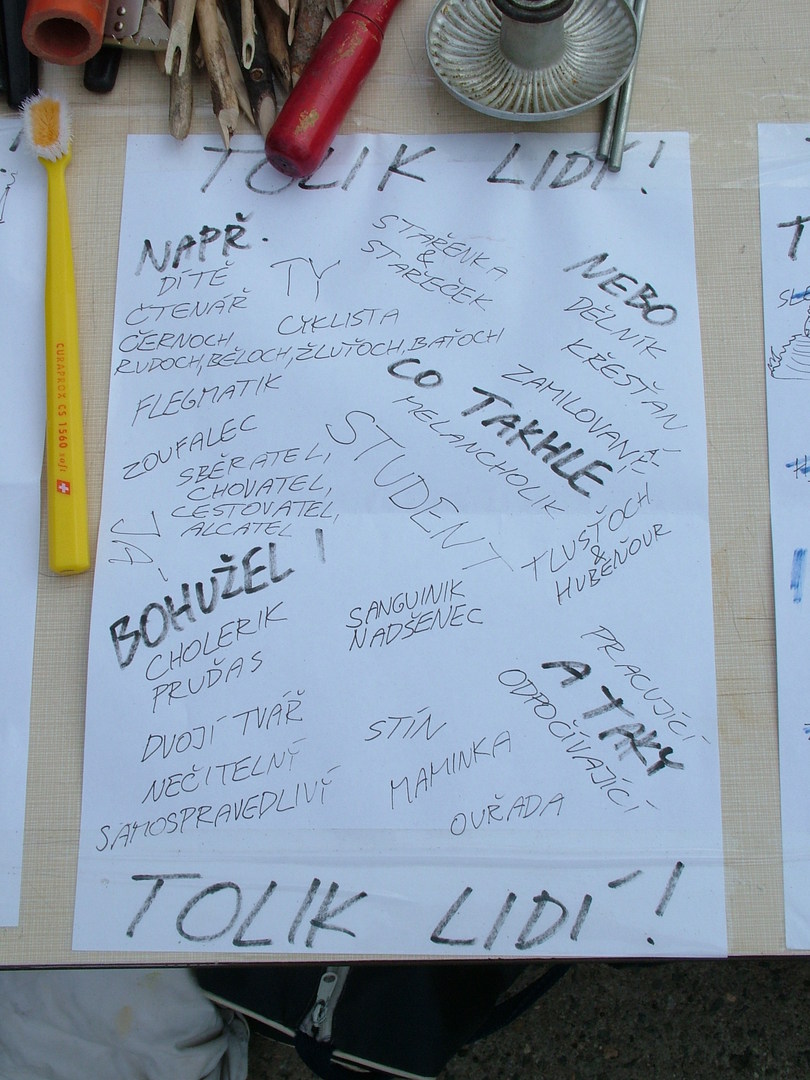 TOLIK LIDÍ!
NAPŘ.
DÍTĚ
TY
STAŘENKA
&
STAŘEČEK
NEBO
ČTENÁŘ
CYKLISTA
DĚLNÍK
ČERNOCH,
RUDOCH, BĚLOCH, ŽLUŤOCH, BAŤOCH
KŘESŤAN
FLEGMATIK
CO TAKHLE
ZAMILOVANÍ
MELANCHOLIK
ZOUFALEC
STUDENT
SBĚRATEL,
CHOVATEL,
CESTOVATEL,
ALCATEL
JÁ
TLUSŤOCH
&
HUBEŇOUR
BOHUŽEL!
CHOLERIK
PRUĎAS
SANGUINIK
NADŠENEC
PRACUJÍCÍ
A TAKY
ODPOČÍVAJÍCÍ
DVOJÍ TVÁŘ
STÍN
NEČITELNÝ
MAMINKA
SAMOSPRAVEDLIVÝ
OUŘADA
TOLIK LIDÍ!
CURAPROX CS 1560 soft